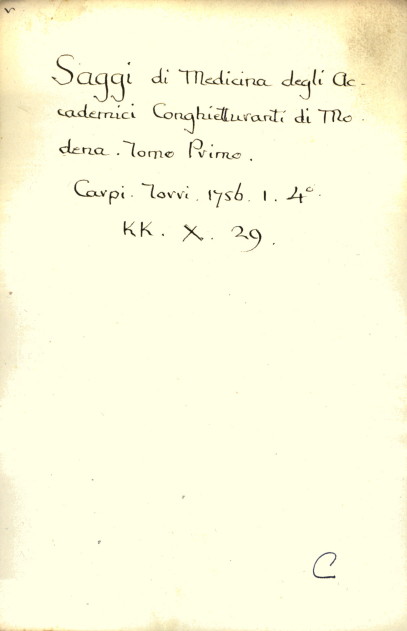 Saggi di Medicina degli Ac-
cademici Conghietturanti di Mo.
dena. Tomo Primo.
Carpi. Torri. 1756. 1. 4°.
KK. X. 29.
C